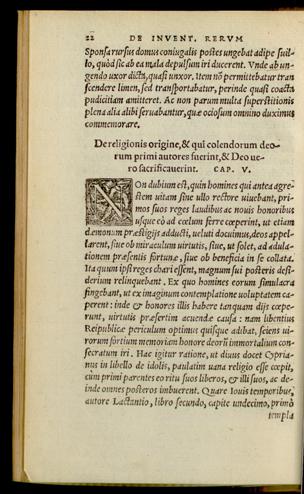 22 DE INVENT. RERVM
Sponsa rursus domus coniugalis postes ungebat adipe suil-
lo, quòd sic ab ea mala depulsum iri ducerent. Vnde ab un-
gendo uxor dicta, quasi unxor. Item nõ permittebatur tran
scendere limen, sed transportabatur, perinde quasi coacta
pudicitiam amitteret. Ac non parum multa superstitionis
plena alia alibi seruabantur, quæ ociosum omnino duximus
commemorare.
De religionis origine, & qui colendorum deo-
rum primi autores fuerint, & Deo ue-
ro sacrificauerint. CAP. V.
NOn dubium est, quin homines qui antea agre-
stem uitam sine ullo rectore uiuebant, pri-
mos suos reges laudibus ac nouis honoribus
usque eò ad cœlum ferre cœperint, ut etiam
dæmonum præstigijs adducti, ueluti docuimus, deos appel-
larent, siue ob miraculum uirtutis, siue, ut solet, ad adula-
tionem præsentis fortunæ, siue ob beneficia in se collata.
Ita quum ipsi reges chari essent, magnum sui posteris desi-
derium relinquebant. Ex quo homines eorum simulacra
fingebant, ut ex imaginum contemplatione uoluptatem ca-
perent: inde & honores illis habere tanquam dijs cœpe-
runt, uirtutis præsertim acuendæ causa: nam libentius
Reipublicæ periculum optimus quisque adibat, sciens ui-
rorum fortium memoriam honore deorũ immortalium con-
secratum iri. Hac igitur ratione, ut diuus docet Cypria-
nus in libello de idolis, paulatim uana religio esse cœpit,
cùm primi parentes eo ritu suos liberos, & illi suos, ac de-
inde omnes posteros imbuerent. Quare Iouis temporibus,
autore Lactantio, libro secundo, capite undecimo, primò
templa